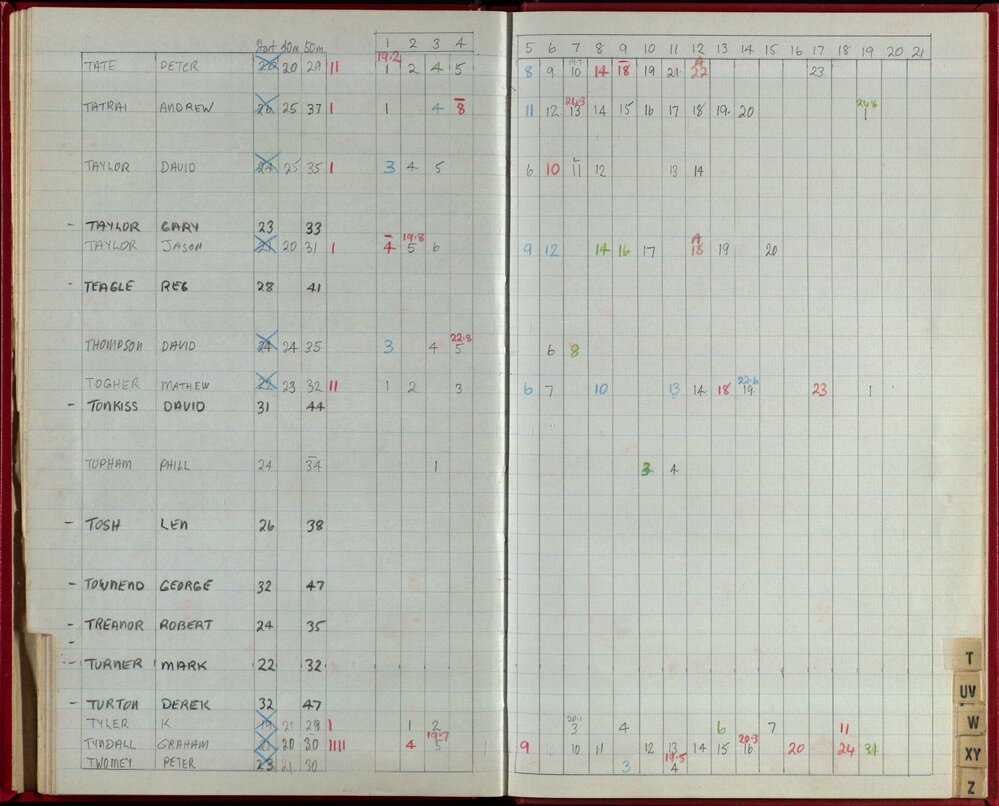 Start 40m 50m 1 2 3 4 5 6 7 8 9 10 11 12 13 14 15 16 17 18 19 20 21
19.2 19.7 A
TATE PETER 20 29 11 1 2 4 5 8 9 10 14 18 19 21 22 23
24.3 24.8
TATRAI ANDREW 26 25 37 1 1 4 8 11 12 13 14 15 16 17 18 19 20 1
TAYLOR DAVID 24 25 35 1 3 4 5 6 10 11 12 13 14
- TAYLOR GARY 23 33
19.8 A
TAYLOR JASON 21 20 31 1 4 5 6 9 12 14 16 17 18 19 20
- TEAGLE REG 28 41
22.8
THOMPSON DAVID 24 24 35 3 4 5 6 8
22.6
TOGHER MATHEW 22 23 32 11 1 2 3 6 7 10 13 14 18 19 23 1
- TONKISS DAVID 31 44
TOPHAM PHILL 24 34 1 3 4
- TOSH LEN 26 38
- TOWNEND GEORGE 32 47
- TREANOR ROBERT 24 35
-
- TURNER MARK 22 32
- TURTON DEREK 32 47
20.1
TYLER K 19 21 29 1 1 2 3 4 6 7 11
19.7 20.3
TYNDALL GRAHAM 21 20 30 1111 4 5 9 10 11 12 13 14 15 16 20 24 31
19.5
TWOMEY PETER 23 21 30 3 4
T
UV
W
XY
Z